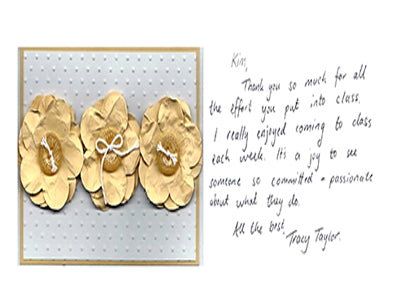 Kim,
Thank you so much for all
the effort you put into class.
I really enjoyed coming to class
each week. It's a joy to see
someone so committed + passionate
about what they do.
All the best,
Tracy Taylor.